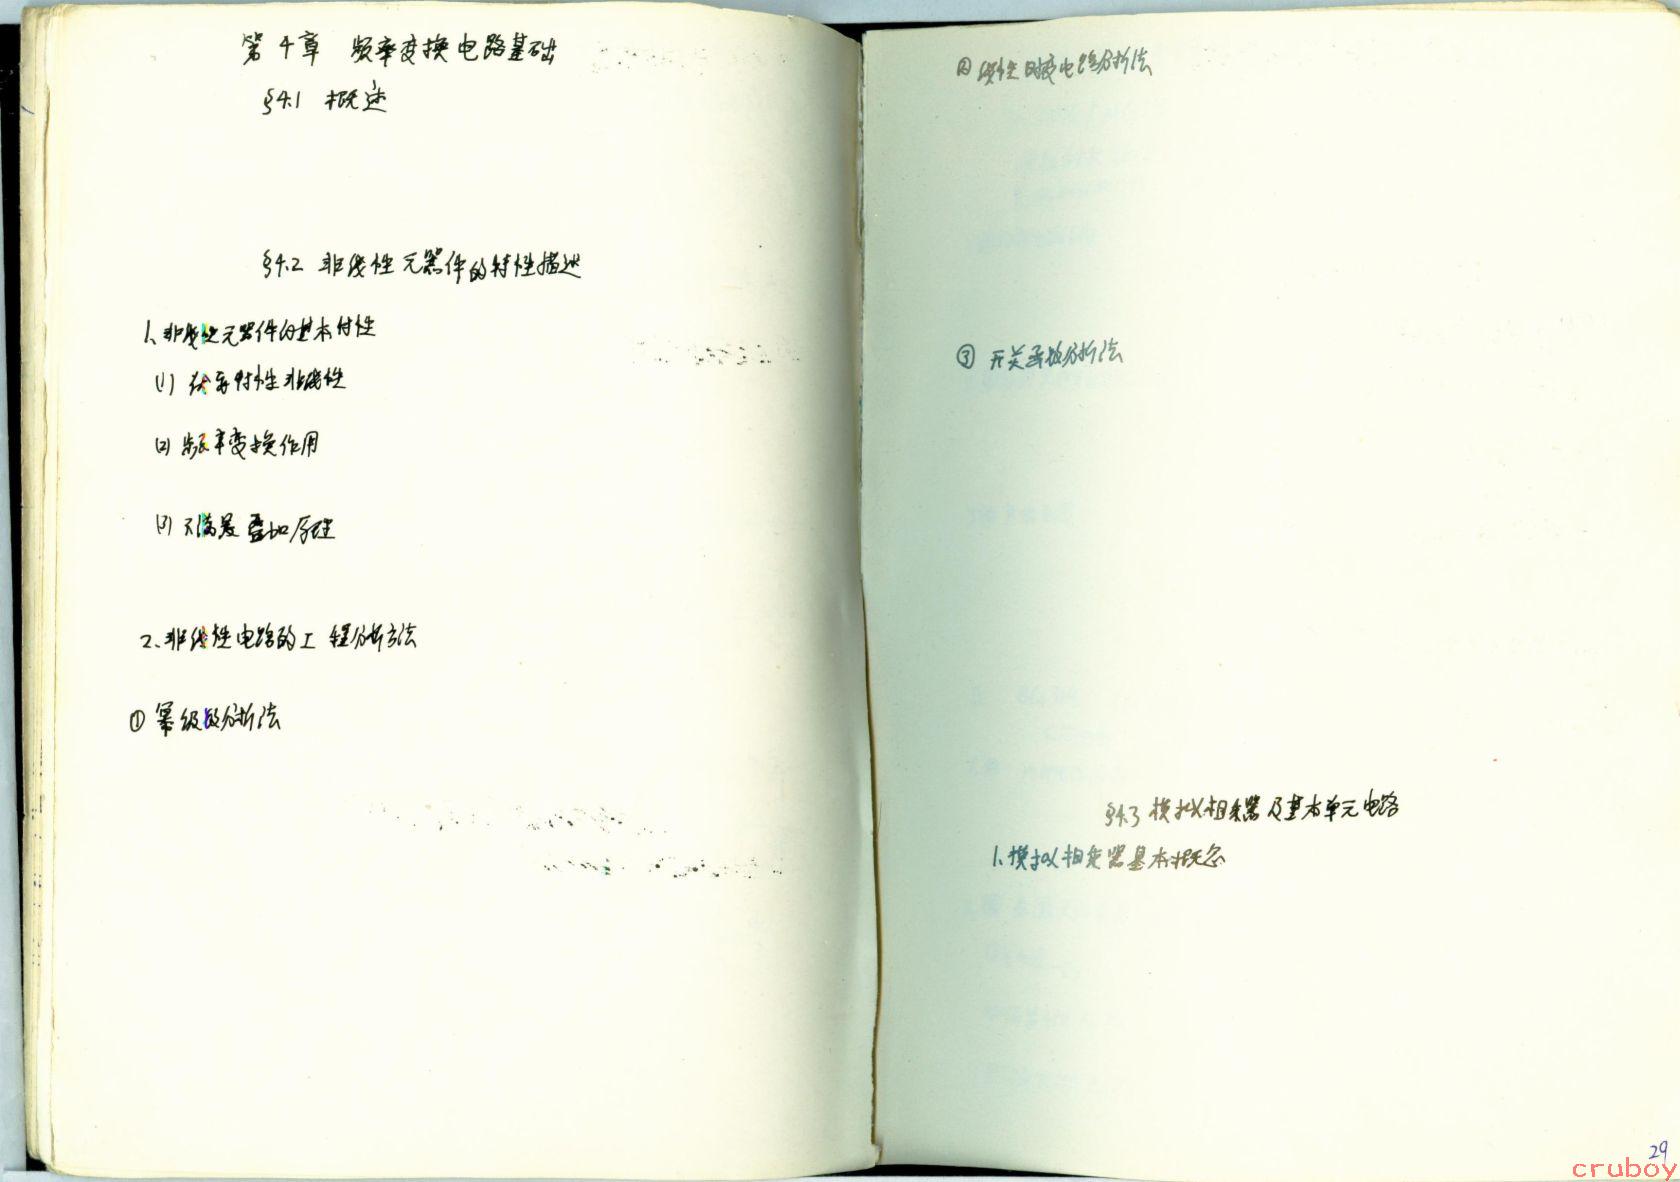 第4章 频率变换电路基础
§4.1 概述
§4.2 非线性元器件的特性描述
1、非线性元器件的基本特性
(1) 伏安特性非线性
(2) 频率变换作用
(3) 不满足叠加原理
2、非线性电路的工程分析方法
① 幂级数分析法
② 线性时变电路分析法
③ 开关函数分析法
§4.3 模拟相乘器及基本单元电路
1、模拟相乘器基本概念
29
cruboy